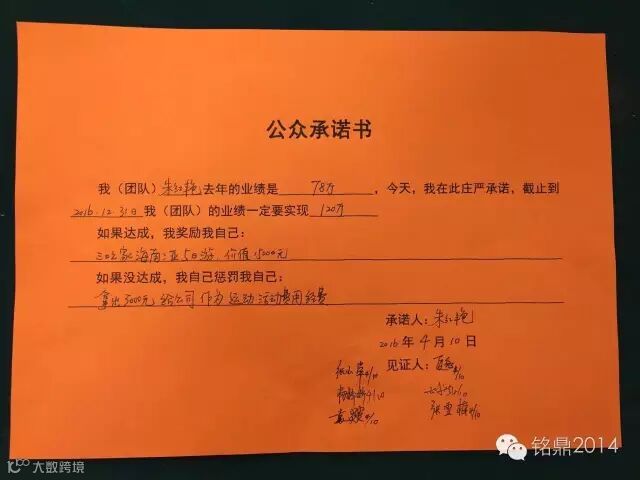 公众承诺书
我（团队）朱红艳去年的业绩是 78万 ，今天，我在此庄严承诺，截止到
2016.12.31日我（团队）的业绩一定要实现 120万
如果达成，我奖励我自己：
三口之家海南三亚5日游，价值15000元
如果没达成，我自己惩罚我自己：
拿出5000元给公司作为运动活动费用经费
承诺人：朱红艳
2016年4月10日
见证人：
4/10
4/10
4/10
张雪梅4/10
铭鼎2014
大数跨境